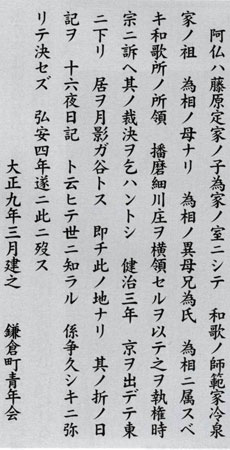 阿仏ハ藤原定家ノ子為家ノ室ニシテ 和歌ノ師範家冷泉
家ノ祖 為相ノ母ナリ 為相ノ異母兄為氏 為相ニ属スベ
キ和歌所ノ所領 播磨細川庄ヲ横領セルヲ以テ之ヲ執権時
宗ニ訴ヘ其ノ裁決ヲ乞ハントシ 健治三年 京ヲ出デテ東
ニ下リ 居ヲ月影ガ谷トス 即チ此ノ地ナリ 其ノ折ノ日
記ヲ 十六夜日記 ト云ヒテ世ニ知ラル 係争久シキニ弥
リテ決セズ 弘安四年遂ニ此ニ歿ス
大正九年三月建之 鎌倉町青年会